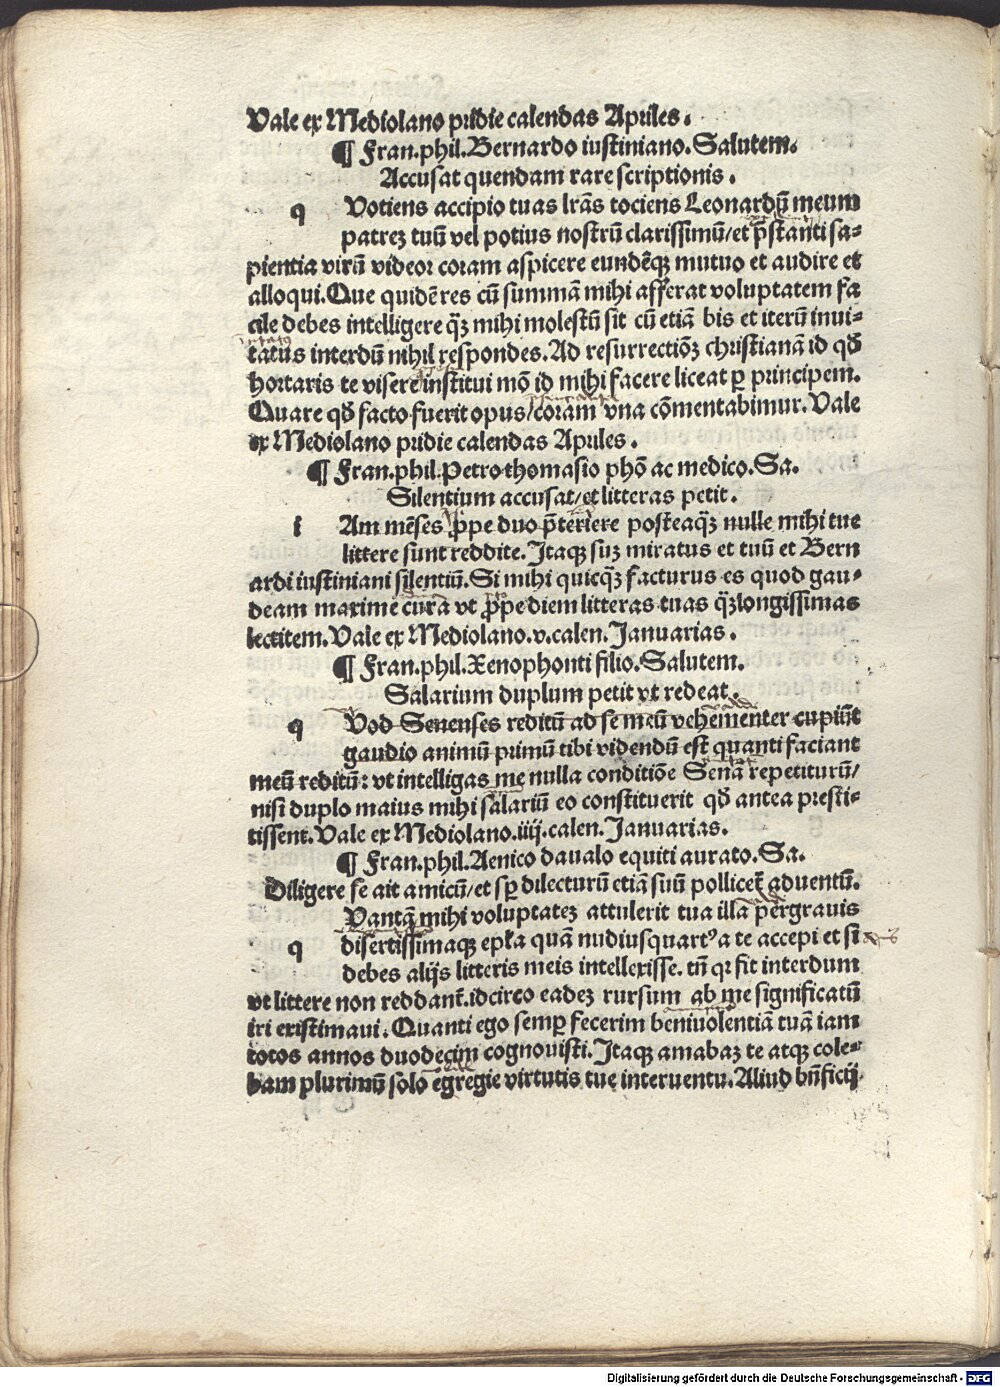 Vale ex Mediolano pridie calendas Apriles.
¶ Fran.phil.Bernardo iustiniano.Salutem.
Accusat quendam rare scriptionis.
q Votiens accipio tuas lr̃as tociens Leonardū meum
patrez tuū vel potius nostrū clarissimū/et p̃stanti sa-
pientia virū videor coram aspicere eundēqꝫ mutuo et audire et
alloqui.Que quidē res cū summā mihi afferat voluptatem fa
cile debes intelligere qꝫ̃ mihi molestū sit cū etiā bis et iterū inui-
tatus interdū nihil respondes.Ad resurrectiōꝫ christianā id qđ
hortaris te visere institui mō id mihi facere liceat ꝑ principem.
Quare qđ facto fuerit opus/coram vna cōmentabimur.Vale
ex Mediolano pridie calendas Apriles.
¶ Fran.phil.Petro thomasio phō ac medico.Sa.
Silentium accusat/et litteras petit.
i Am mēses ꝓpe duo p̃teriere posteaqꝫ̃ nulle mihi tue
littere sunt reddite.Itaqꝫ suꝫ miratus et tuū et Bern
ardi iustiniani silentiū.Si mihi quicqꝫ̃ facturus es quod gau-
deam maxime cura vt ꝓpe diem litteras tuas qꝫ̃longissimas
lectitem.Vale ex Mediolano.v.calen.Januarias.
¶ Fran.phil.Xenophonti filio.Salutem.
Salarium duplum petit vt redeat.
q Vod Senenses reditū ad se meū vehementer cupiūt
gaudio animū primū tibi videndū est quanti faciant
meū reditū: vt intelligas me nulla conditiōe Senā repetiturū/
nisi duplo maius mihi salariū eo constituerit qđ antea presti-
tissent.Vale ex Mediolano.iiij.calen.Januarias.
¶ Fran.phil.Aenico daualo equiti aurato.Sa.
Diligere se ait amicū/et sꝑ dilecturū etiā suū pollicet̃ aduentū.
Vantā mihi voluptateꝫ attulerit tua illa pergrauis
q disertissimaqꝫ epl̃a quā nudiusquartꝰ a te accepi et si
debes alijs litteris meis intellexisse. tñ qꝛ fit interdum
vt littere non reddant̃.idcirco eadeꝫ rursum ab me significatū
iri existimaui.Quanti ego semꝑ fecerim beniuolentiā tuā iam
totos annos duodecim cognouisti.Itaqꝫ amabaꝫ te atqꝫ cole-
bam plurimū solo egregie virtutis tue interuentu.Aliud bñficij
Digitalisierung gefördert durch die Deutsche Forschungsgemeinschaft - DFG